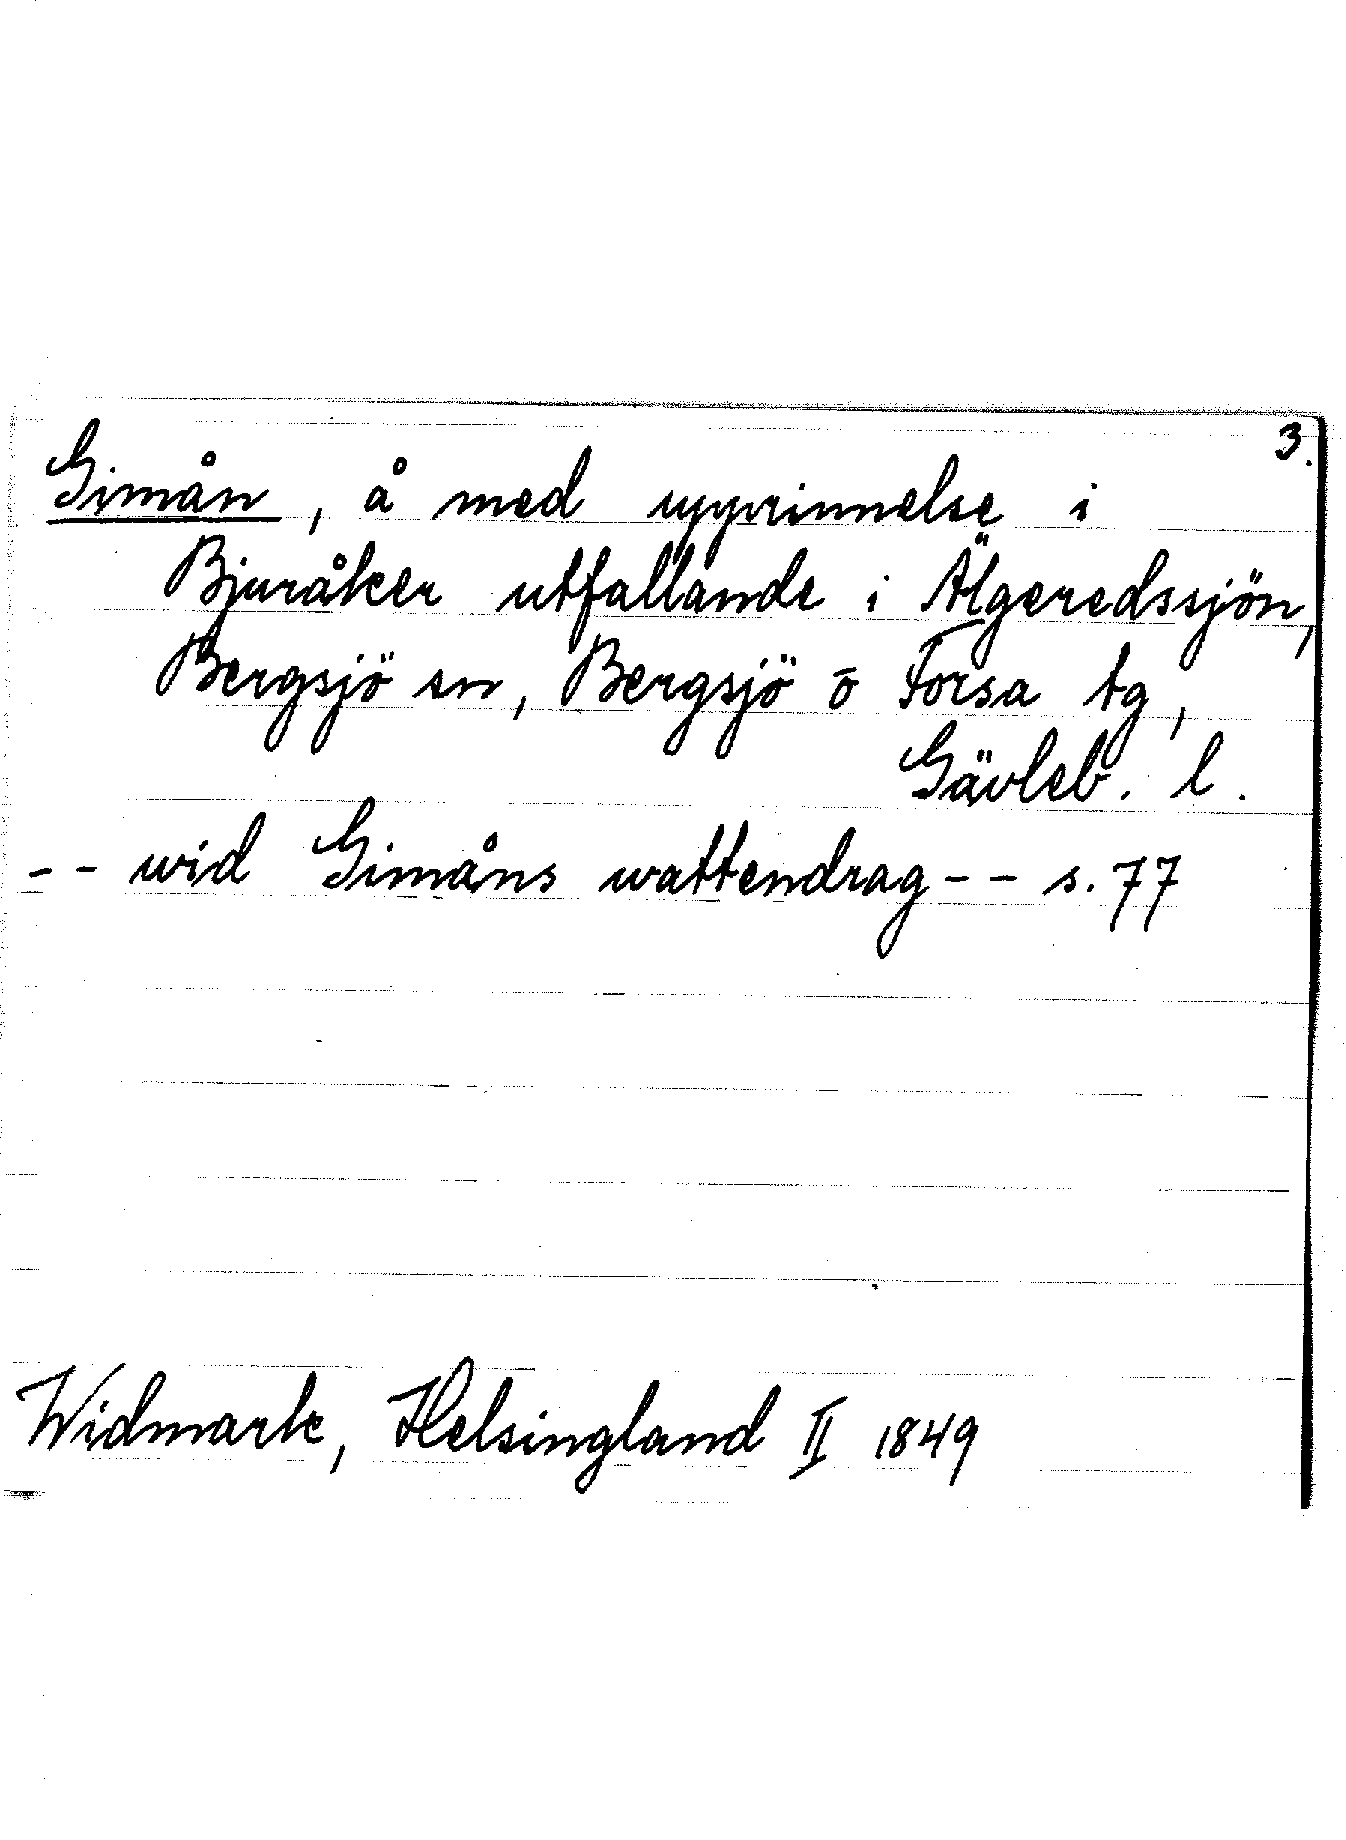 3.
Gimån, å med upprinnelse i
Bjuråker utfallande i Älgeredssjön,
Bergsjö sn, Bergsjö o Forsa tg,
Gävleb. l.
-- wid Gimåns wattendrag -- s. 77
Widmark, Helsingland II 1849